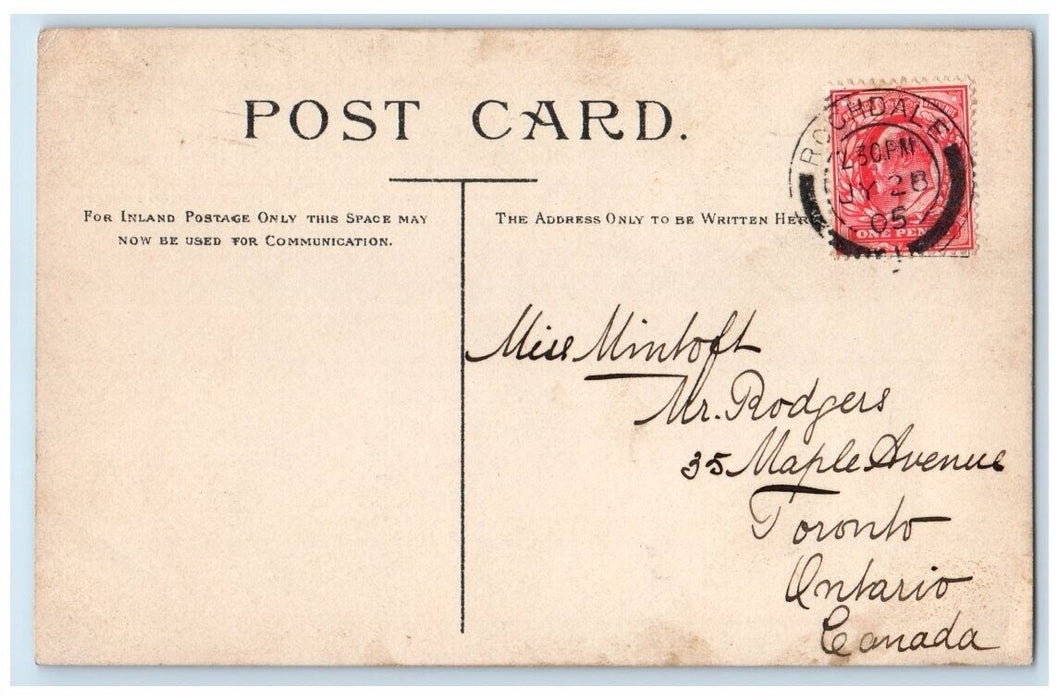 POST CARD.
FOR INLAND POSTAGE ONLY THIS SPACE MAY
NOW BE USED FOR COMMUNICATION.
THE ADDRESS ONLY TO BE WRITTEN HERE
ROCHDALE
2.30PM
JY 28
05
ONE PENNY
Miss Mintoft
Mr. Rodgers
35 Maple Avenue
Toronto
Ontario
Canada